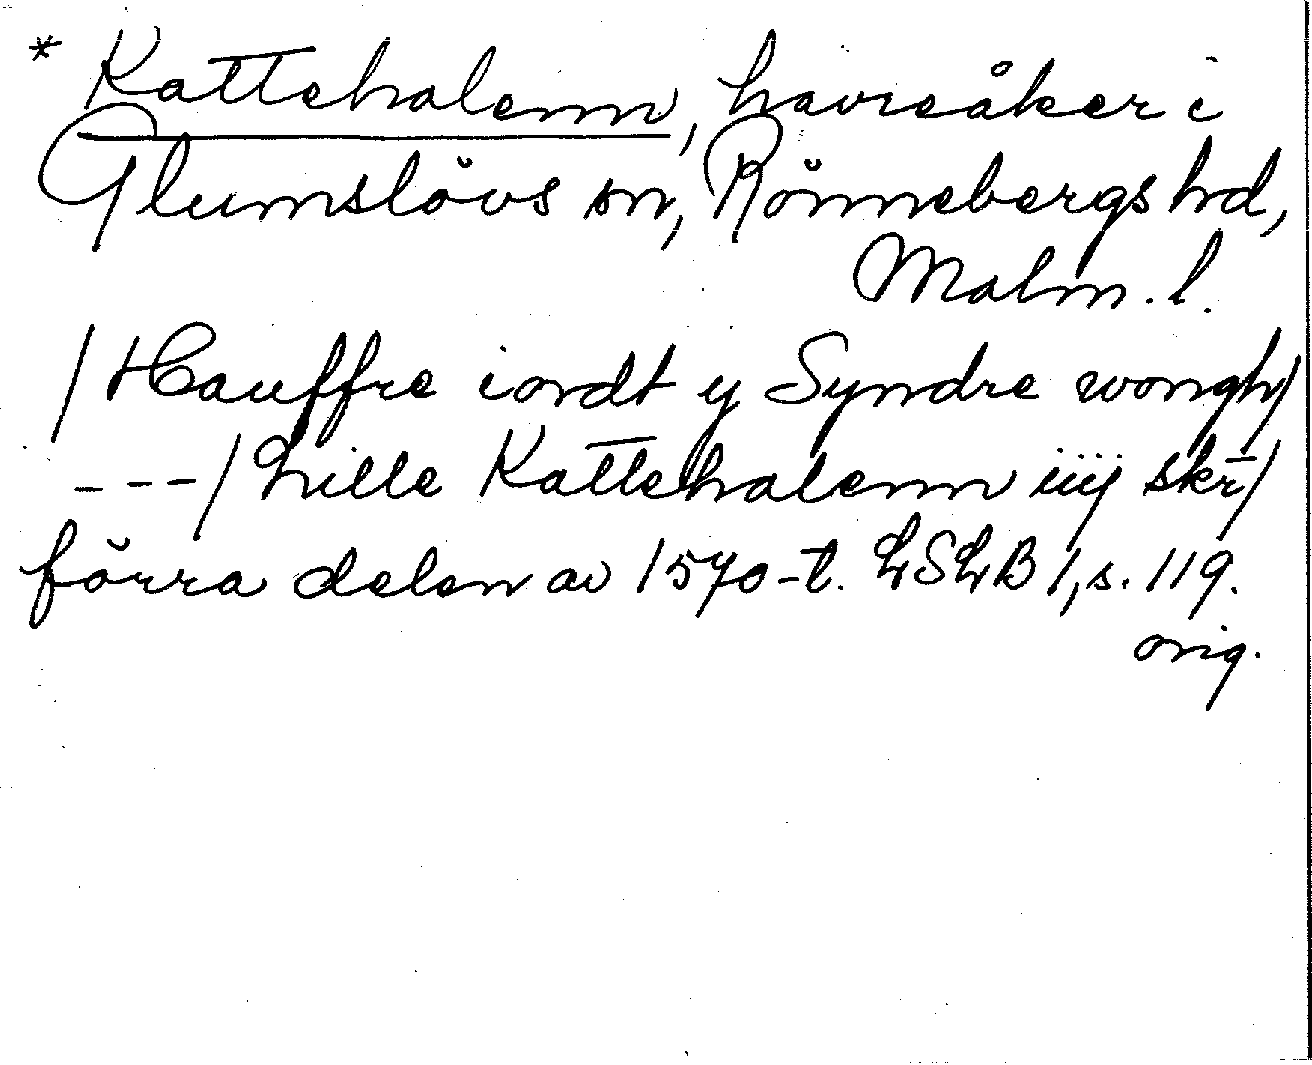 * Kattehalenn, havreåker i
Glumslövs sn, Rönnebergs hd,
Malm. l.
/Hauffre iordt y Syndre wongh/
---/Lille Kattehalenn iiij skr/
förra delen av 1570-t. LSLB 1, s. 119.
orig.